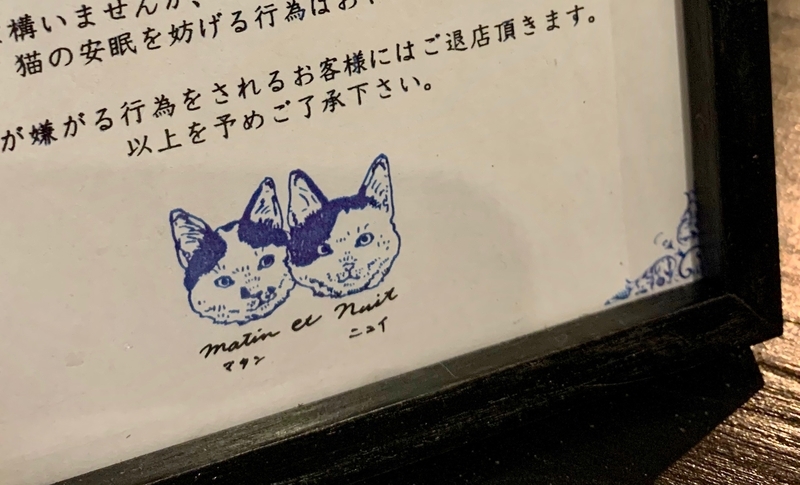 構いませんが、
猫の安眠を妨げる行為はお
が嫌がる行為をされるお客様にはご退店頂きます。
以上を予めご了承下さい。
matin et Nuit
マタン ニュイ